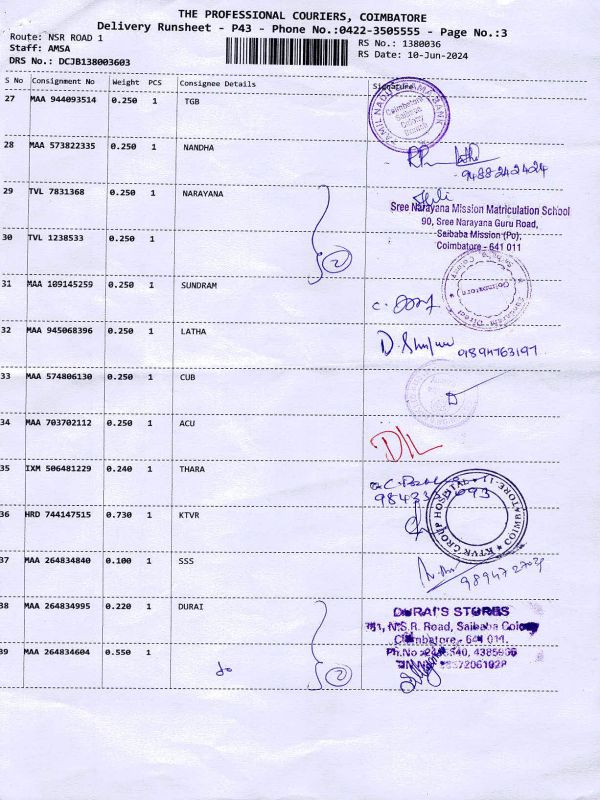 THE PROFESSIONAL COURIERS, COIMBATORE
Delivery Runsheet - P43 - Phone No.:0422-3505555 - Page No.:3
Route: NSR ROAD 1
Staff: AMSA
DRS No.: DCJB138003603
RS No.: 1380036
RS Date: 10-Jun-2024
S No Consignment No Weight PCS Consignee Details Signature
27 MAA 944093514 0.250 1 TGB
TAMILNADU GRAMA BANK
Coimbatore
Saibaba
Colony
Branch
28 MAA 573822335 0.250 1 NANDHA
9488242424
29 TVL 7831368 0.250 1 NARAYANA
Sree Narayana Mission Matriculation School
90, Sree Narayana Guru Road,
Saibaba Mission (Po),
Coimbatore - 641 011
30 TVL 1238533 0.250 1
2
31 MAA 109145259 0.250 1 SUNDRAM
Coimbatore
32 MAA 945068396 0.250 1 LATHA
33 MAA 574806130 0.250 1 CUB
34 MAA 703702112 0.250 1 ACU
D/L
35 IXM 506481229 0.240 1 THARA
36 HRD 744147515 0.730 1 KTVR
KTVR GROUP HOSPITAL
COIMBATORE-11
37 MAA 264834840 0.100 1 SSS
38 MAA 264834995 0.220 1 DURAI
DURAI'S STORES
N.S.R. Road, Saibaba Colony
Coimbatore - 641 011.
39 MAA 264834604 0.550 1
do
2
Ph.No